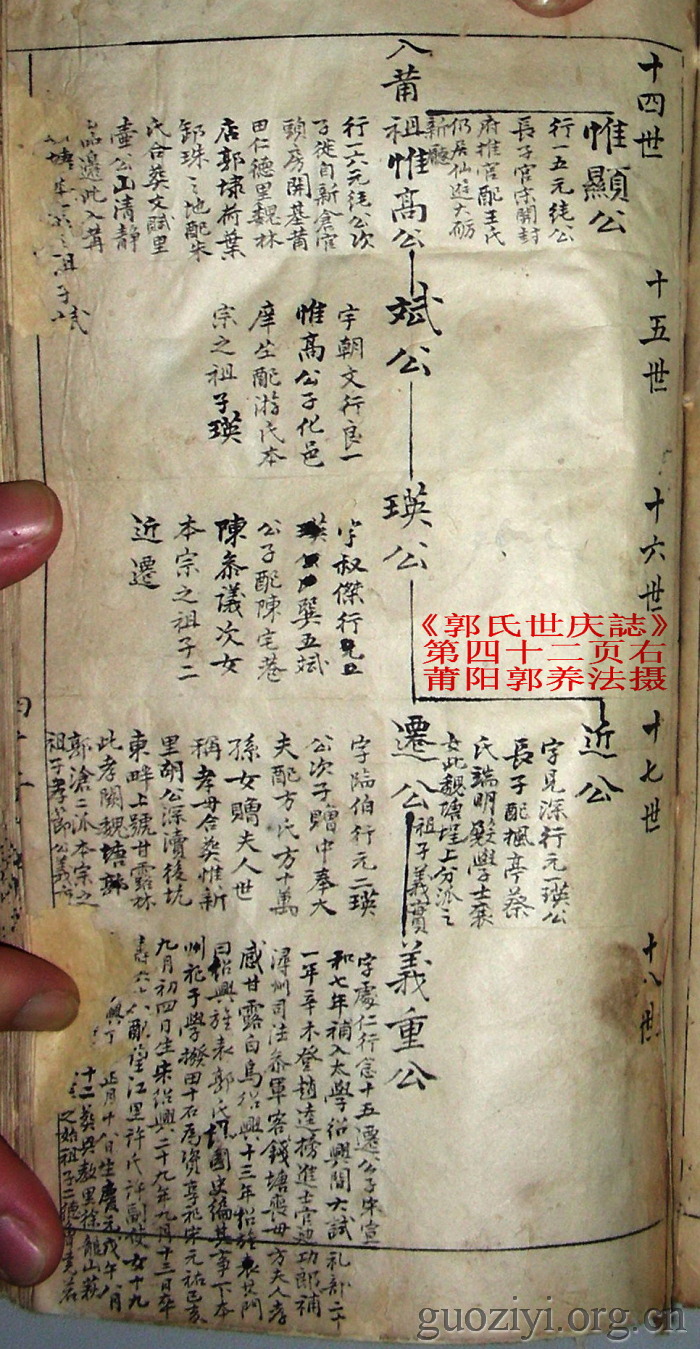 十四世
惟顯公
行一五元徒公
長子官宋開封
府推官配王氏
仍居仙遊大蔚
新廳
入莆祖惟高公
行一六元徒公次
子從自新倉官
頭房開基莆
田仁德里魏林
店郭埭荷葉
卸珠之地配朱
氏合葬文賦里
壷公山清靜
邊此入莆
塘
之祖子斌
十五世
斌公
字朝文行良一
惟高公子化邑
庠生配游氏本
宗之祖子瑛
十六世
瑛公
字叔傑行
巽五斌
公子配陳宅巷
陳參議次女
本宗之祖子二
近遷
十七世
近公
字見深行元一瑛公
長子配楓亭蔡
氏端明殿學士襄
女此魏塘埕上分派之
祖子義賓
遷公
字臨伯行元二瑛
公次子贈中奉大
夫配方氏方十萬
孫女贈夫人世
稱孝母合葬惟新
里胡公深瀆後坑
東畔上號甘露林
此孝闕魏塘郭
郭滄二派本宗之
祖子孝
十八世
義重公
字處仁行急十五遷公子宋宣
和七年補入太學紹興間大試礼部二十
一年辛未登趙逵榜進士官迪功郎補
潯州司法參軍客錢塘喪母方夫人孝
感甘露白烏紹興十三年招旌表其門
曰紹興旌表郭氏國史編其事下本
州祀于學撥田十石爲資享祀宋元祐己亥
九月初四日生宋紹興二十九年九月十三日卒
壽六十八配望江里許氏許副使女十九
正月十八日生慶元戊午八月
十二葬
里徐龍山
之始祖子二德
《郭氏世庆誌》
第四十二页右
莆阳郭养法摄
guoziyi.org.cn